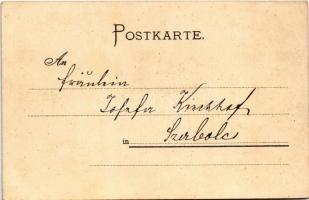 POSTKARTE.
An
Fräulein
Josefa Kirchhof
in Szerbolcs